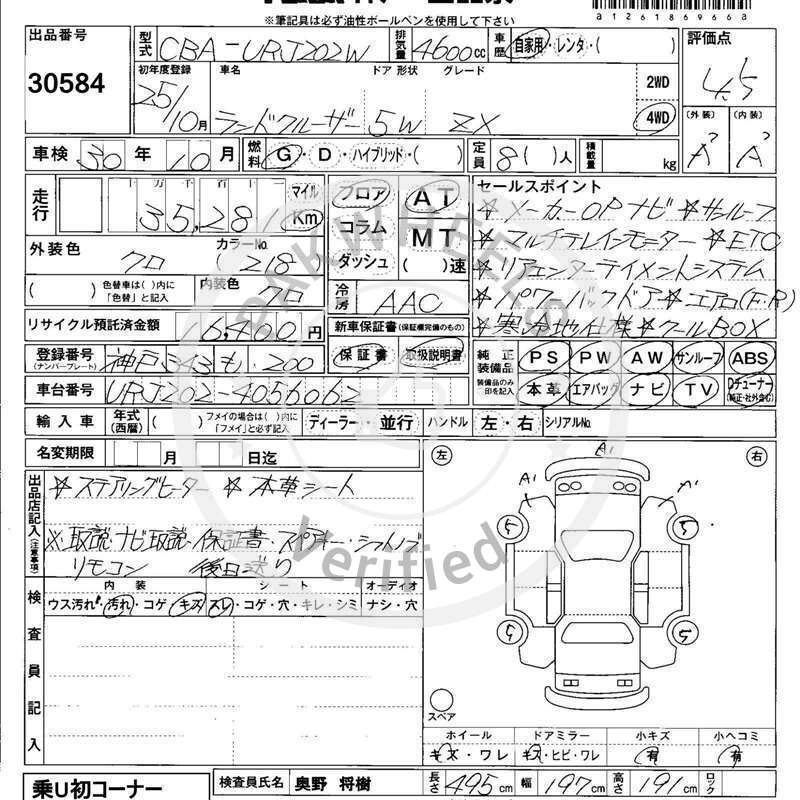 ※筆記具は必ず油性ボールペンを使用して下さい
a1261869668
出品番号 30584
型式 CBA-URJ202W 排気量 4600cc 車歴 自家用・レンタ・( ) 評価点 4.5
初年度登録 25/10月 車名 ランドクルーザー ドア 形状 5W グレード ZX 2WD 4WD
(外装) A (内装) A
車検 30年 10月 燃料 G・D・ハイブリッド・( ) 定員 8( )人 積載量 kg
走行 十万千百十一 35,281 マイル Km フロア コラム ダッシュ AT MT ( )速
セールスポイント
☆メーカーOPナビ☆サンルーフ
☆マルチテレインモニター☆ETC
☆リアエンターテイメントシステム
☆パワーバックドア☆エアロ(F・R)
☆寒冷地仕様☆クールBOX
外装色 クロ カラーNo. (218)
( ) 色替車は( )内に「色替」と記入 内装色 クロ 冷房 AAC
リサイクル預託済金額 16,400円 新車保証書(保証欄完備のもの)
登録番号(ナンバープレート) 神戸343も 200 保証書 取扱説明書
純正装備品 PS PW AW サンルーフ ABS
車台番号 URJ202-4056062
装備品のみ印を記入 本革 エアバッグ ナビ TV Dチューナー(純正・社外含む)
輸入車 年式(西暦) ( ) フメイの場合は( )内に「フメイ」と必ず記入 ディーラー・並行 ハンドル 左・右 シリアルNo.
名変期限 月 日迄
出品店記入(注意事項)
☆ステアリングヒーター ☆本革シート
※取説・ナビ取説・保証書・スペアキー・
リモコン 後日送り
検査員記入
内装 シート オーディオ
ウス汚れ・汚れ・コゲ・キズ スレ・コゲ・穴・キレ・シミ ナシ・穴
左 右
A1
A1 A1
5 5
5 5
スペア
ホイール ドアミラー 小キズ 小ヘコミ
キズ・ワレ キズ・ヒビ・ワレ 有 有
乗U初コーナー 検査員氏名 奥野 将樹 長さ 495cm 幅 197cm 高さ 191cm ロック
PAKWHEELS
Verified